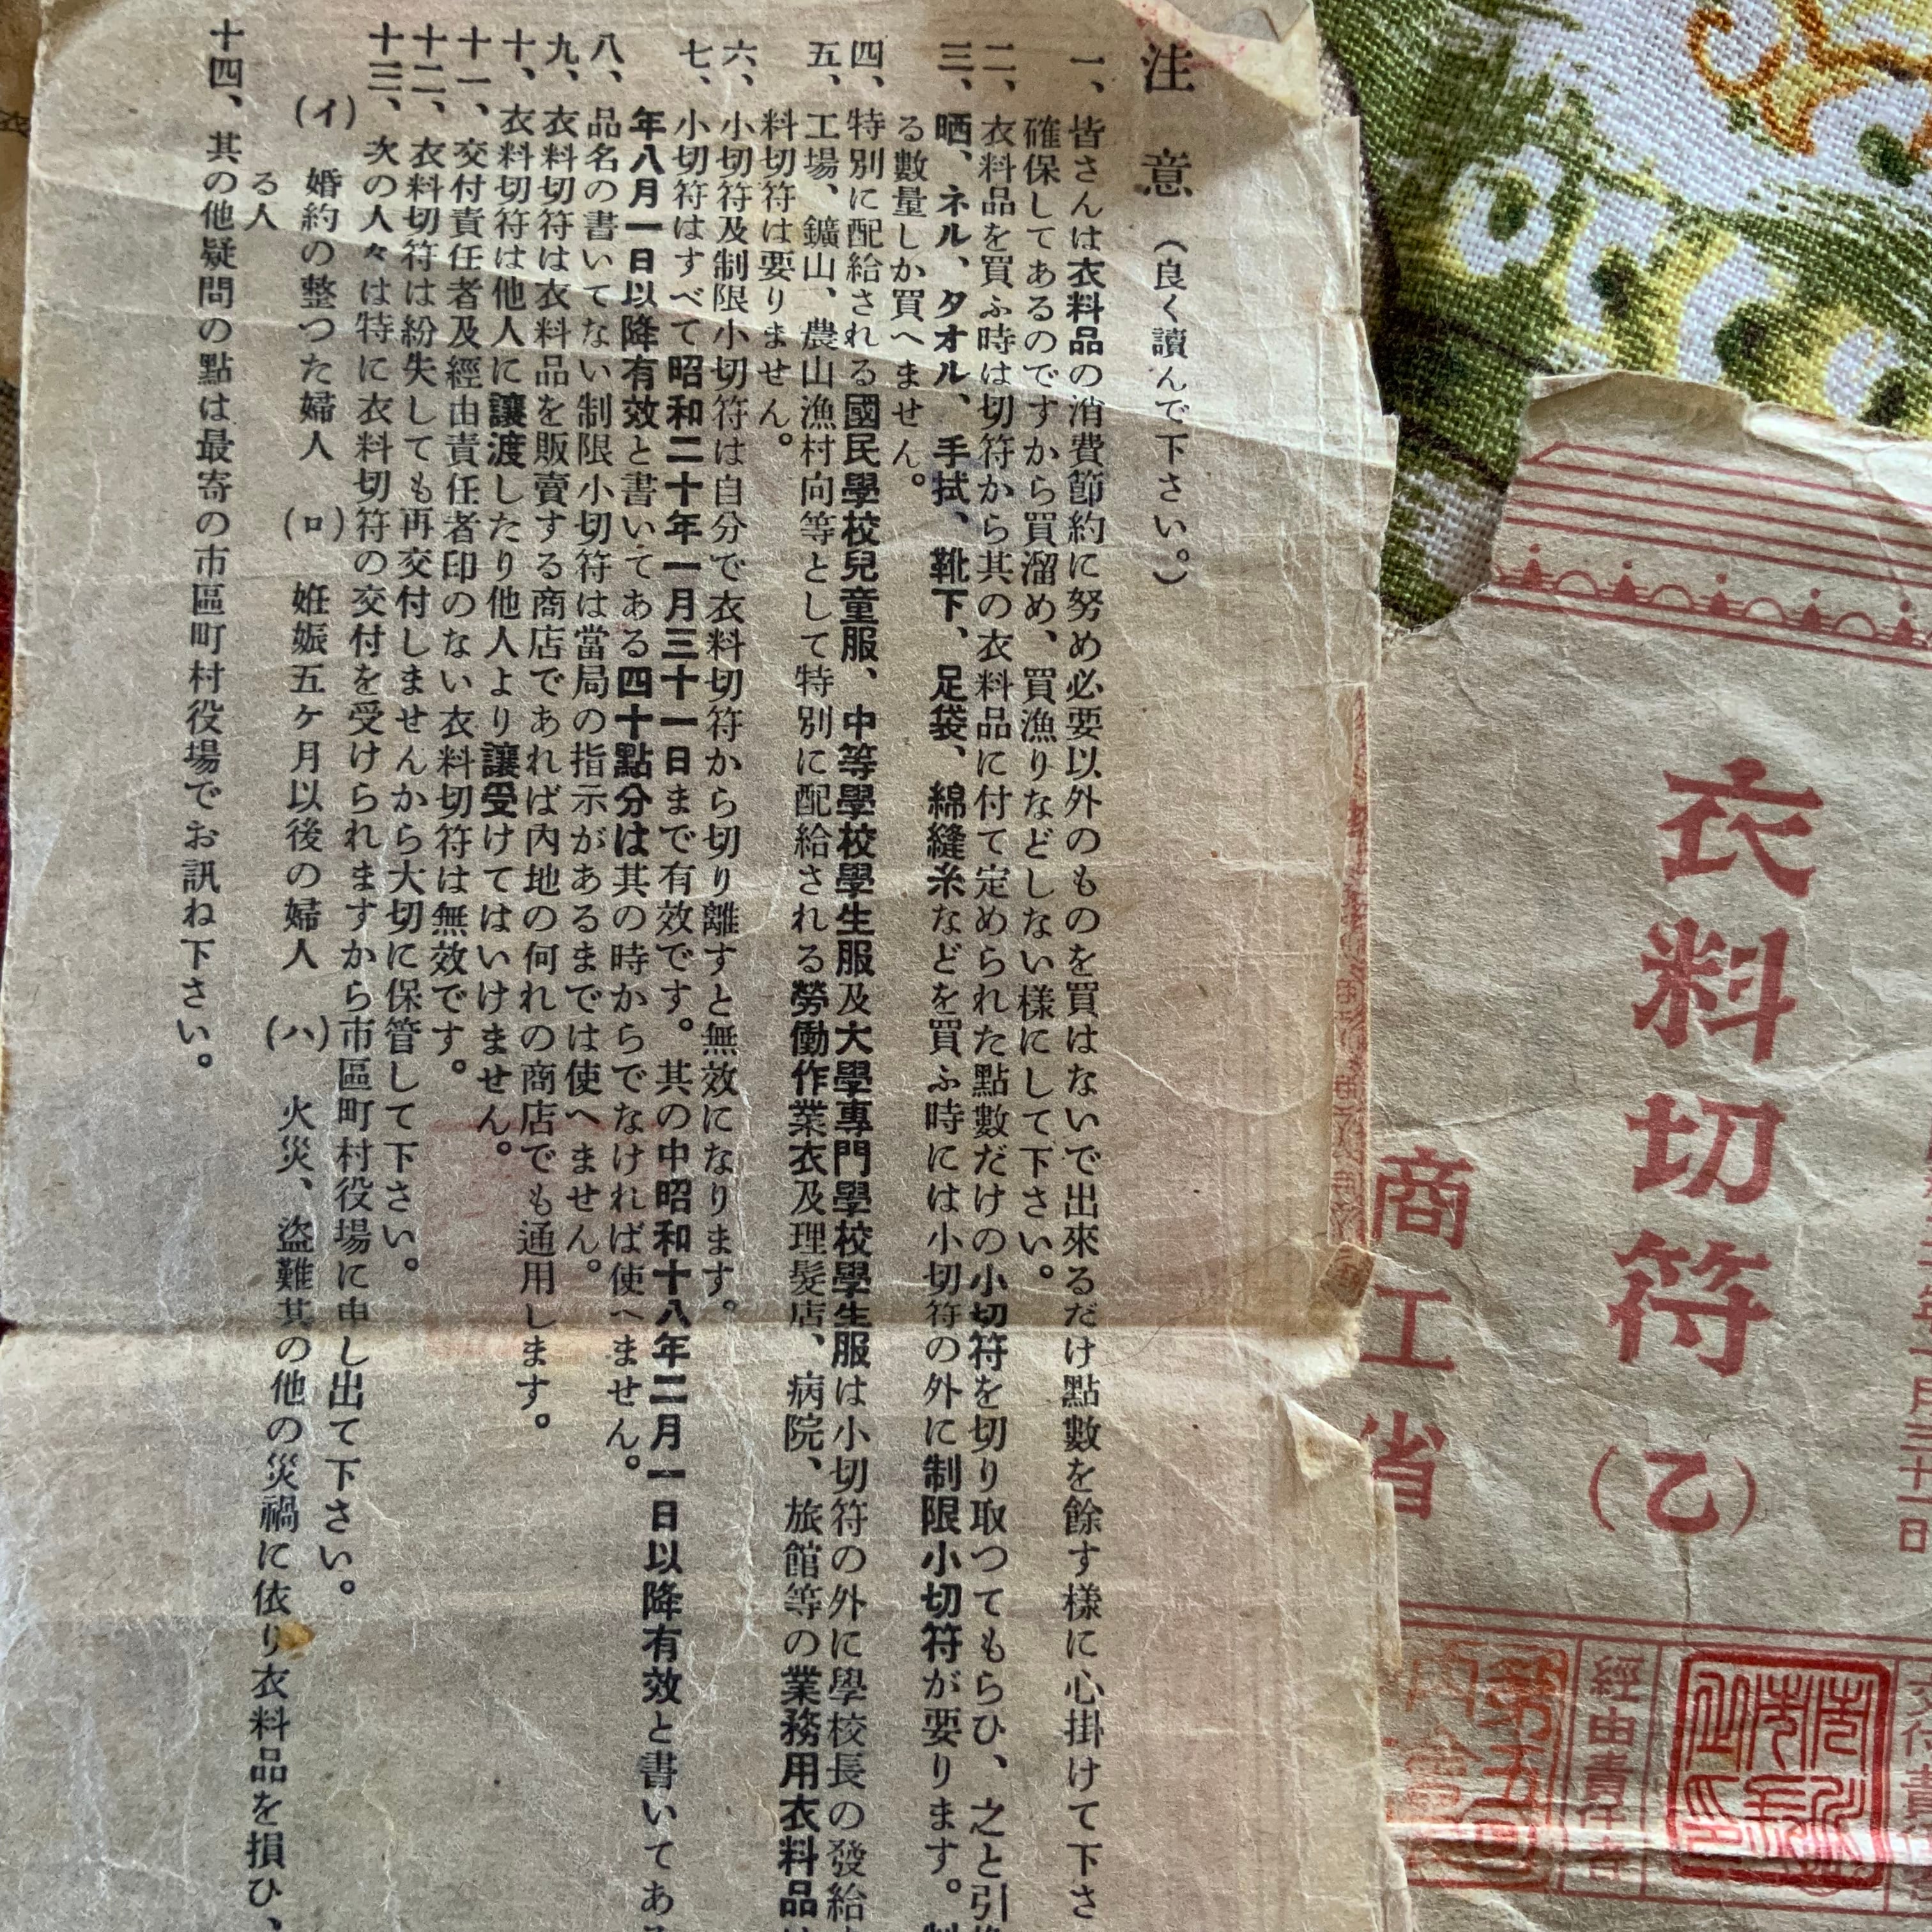 注意(良く讀んで下さい。)
一、皆さんは衣料品の消費節約に努め必要以外のものを買はないで出來るだけ點數を餘す樣に心掛けて下さ
確保してあるのですから買溜め、買漁りなどしない樣にして下さい。
二、衣料品を買ふ時は切符から其の衣料品に付て定められた點數だけの小切符を切り取つてもらひ、之と引
三、晒、ネル、タオル、手拭、靴下、足袋、綿縫糸などを買ふ時には小切符の外に制限小切符が要ります。
る數量しか買へません。
四、特別に配給される國民學校兒童服、中等學校學生服及大學專門學校學生服は小切符の外に學校長の發給
五、工場、鑛山、農山漁村向等として特別に配給される勞働作業衣及理髮店、病院、旅館等の業務用衣料品
料切符は要りません。
六、小切符及制限小切符は自分で衣料切符から切り離すと無效になります。
七、小切符はすべて昭和二十年一月三十一日まで有效です。其の中昭和十八年二月一日以降有效と書いてあ
年八月一日以降有效と書いてある四十點分は其の時からでなければ使へません。
八、品名の書いてない制限小切符は當局の指示があるまでは使へません。
九、衣料切符は衣料品を販賣する商店であれば內地の何れの商店でも通用します。
十、衣料切符は他人に讓渡したり他人より讓受けてはいけません。
十一、交付責任者及經由責任者印のない衣料切符は無效です。
十二、衣料切符は紛失しても再交付しませんから大切に保管して下さい。
十三、次の人々は特に衣料切符の交付を受けられますから市區町村役場に申し出て下さい。
(イ)婚約の整つた婦人 (ロ)姙娠五ケ月以後の婦人 (ハ)火災、盜難其の他の災禍に依り衣料品を損ひ、
る人
十四、其の他疑問の點は最寄の市區町村役場でお訊ね下さい。
衣料切符(乙)
商工省
經由責任者
第五